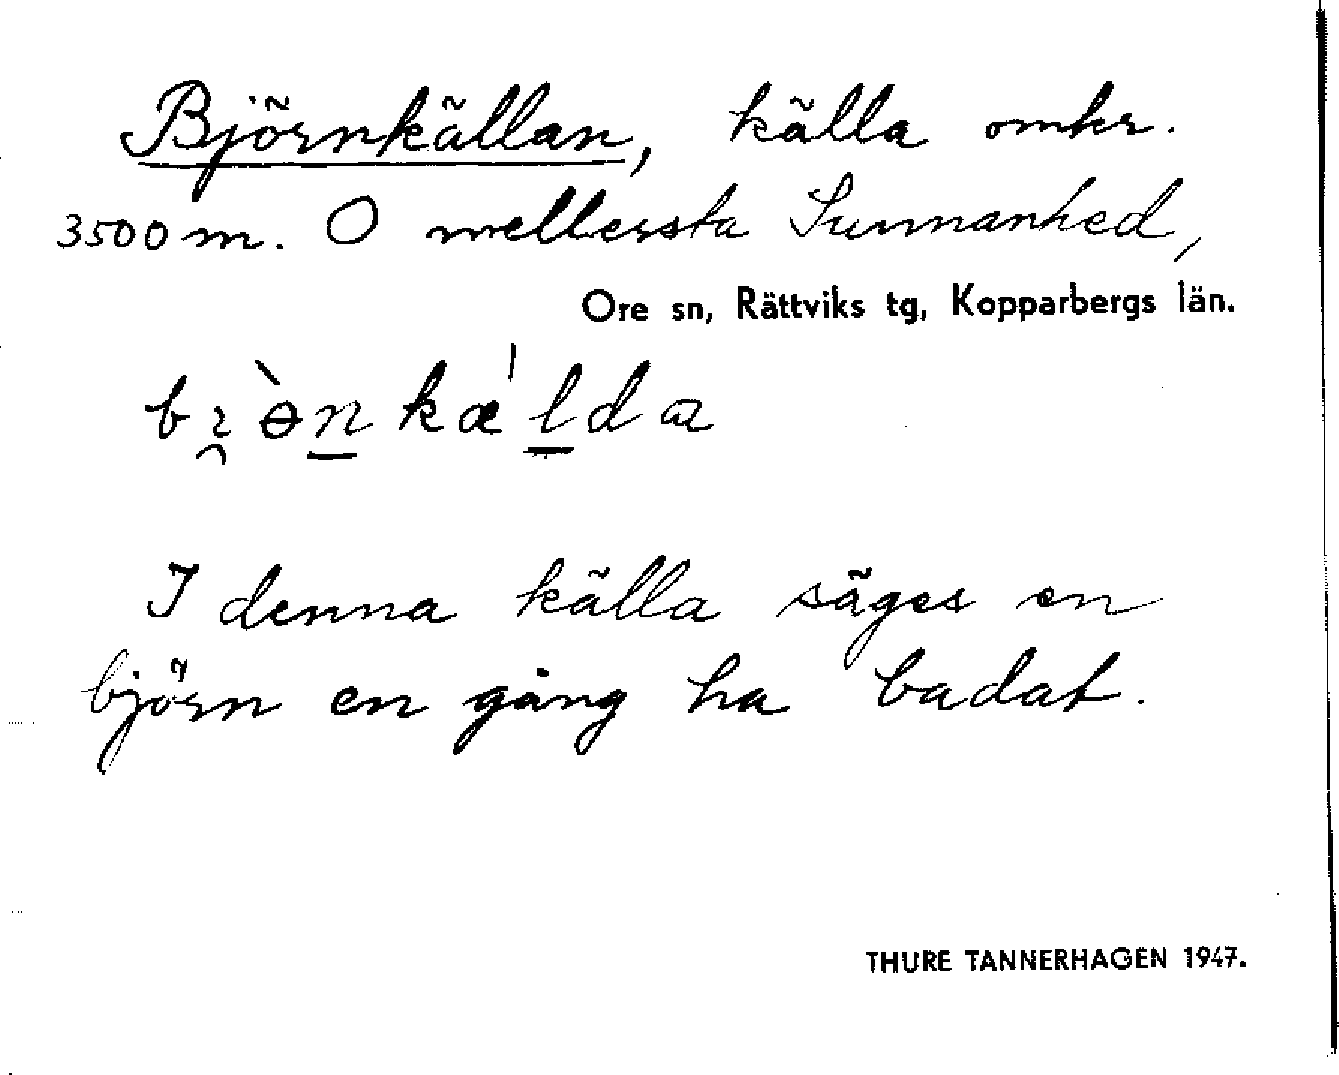 Björnkällan, källa omkr.
3500 m. O mellersta Sunnanhed,
Ore sn, Rättviks tg, Kopparbergs län.
bɪ̯ɵ̀n̲kæ̍l̲da
I denna källa säges en
björn en gång ha badat.
THURE TANNERHAGEN 1947.